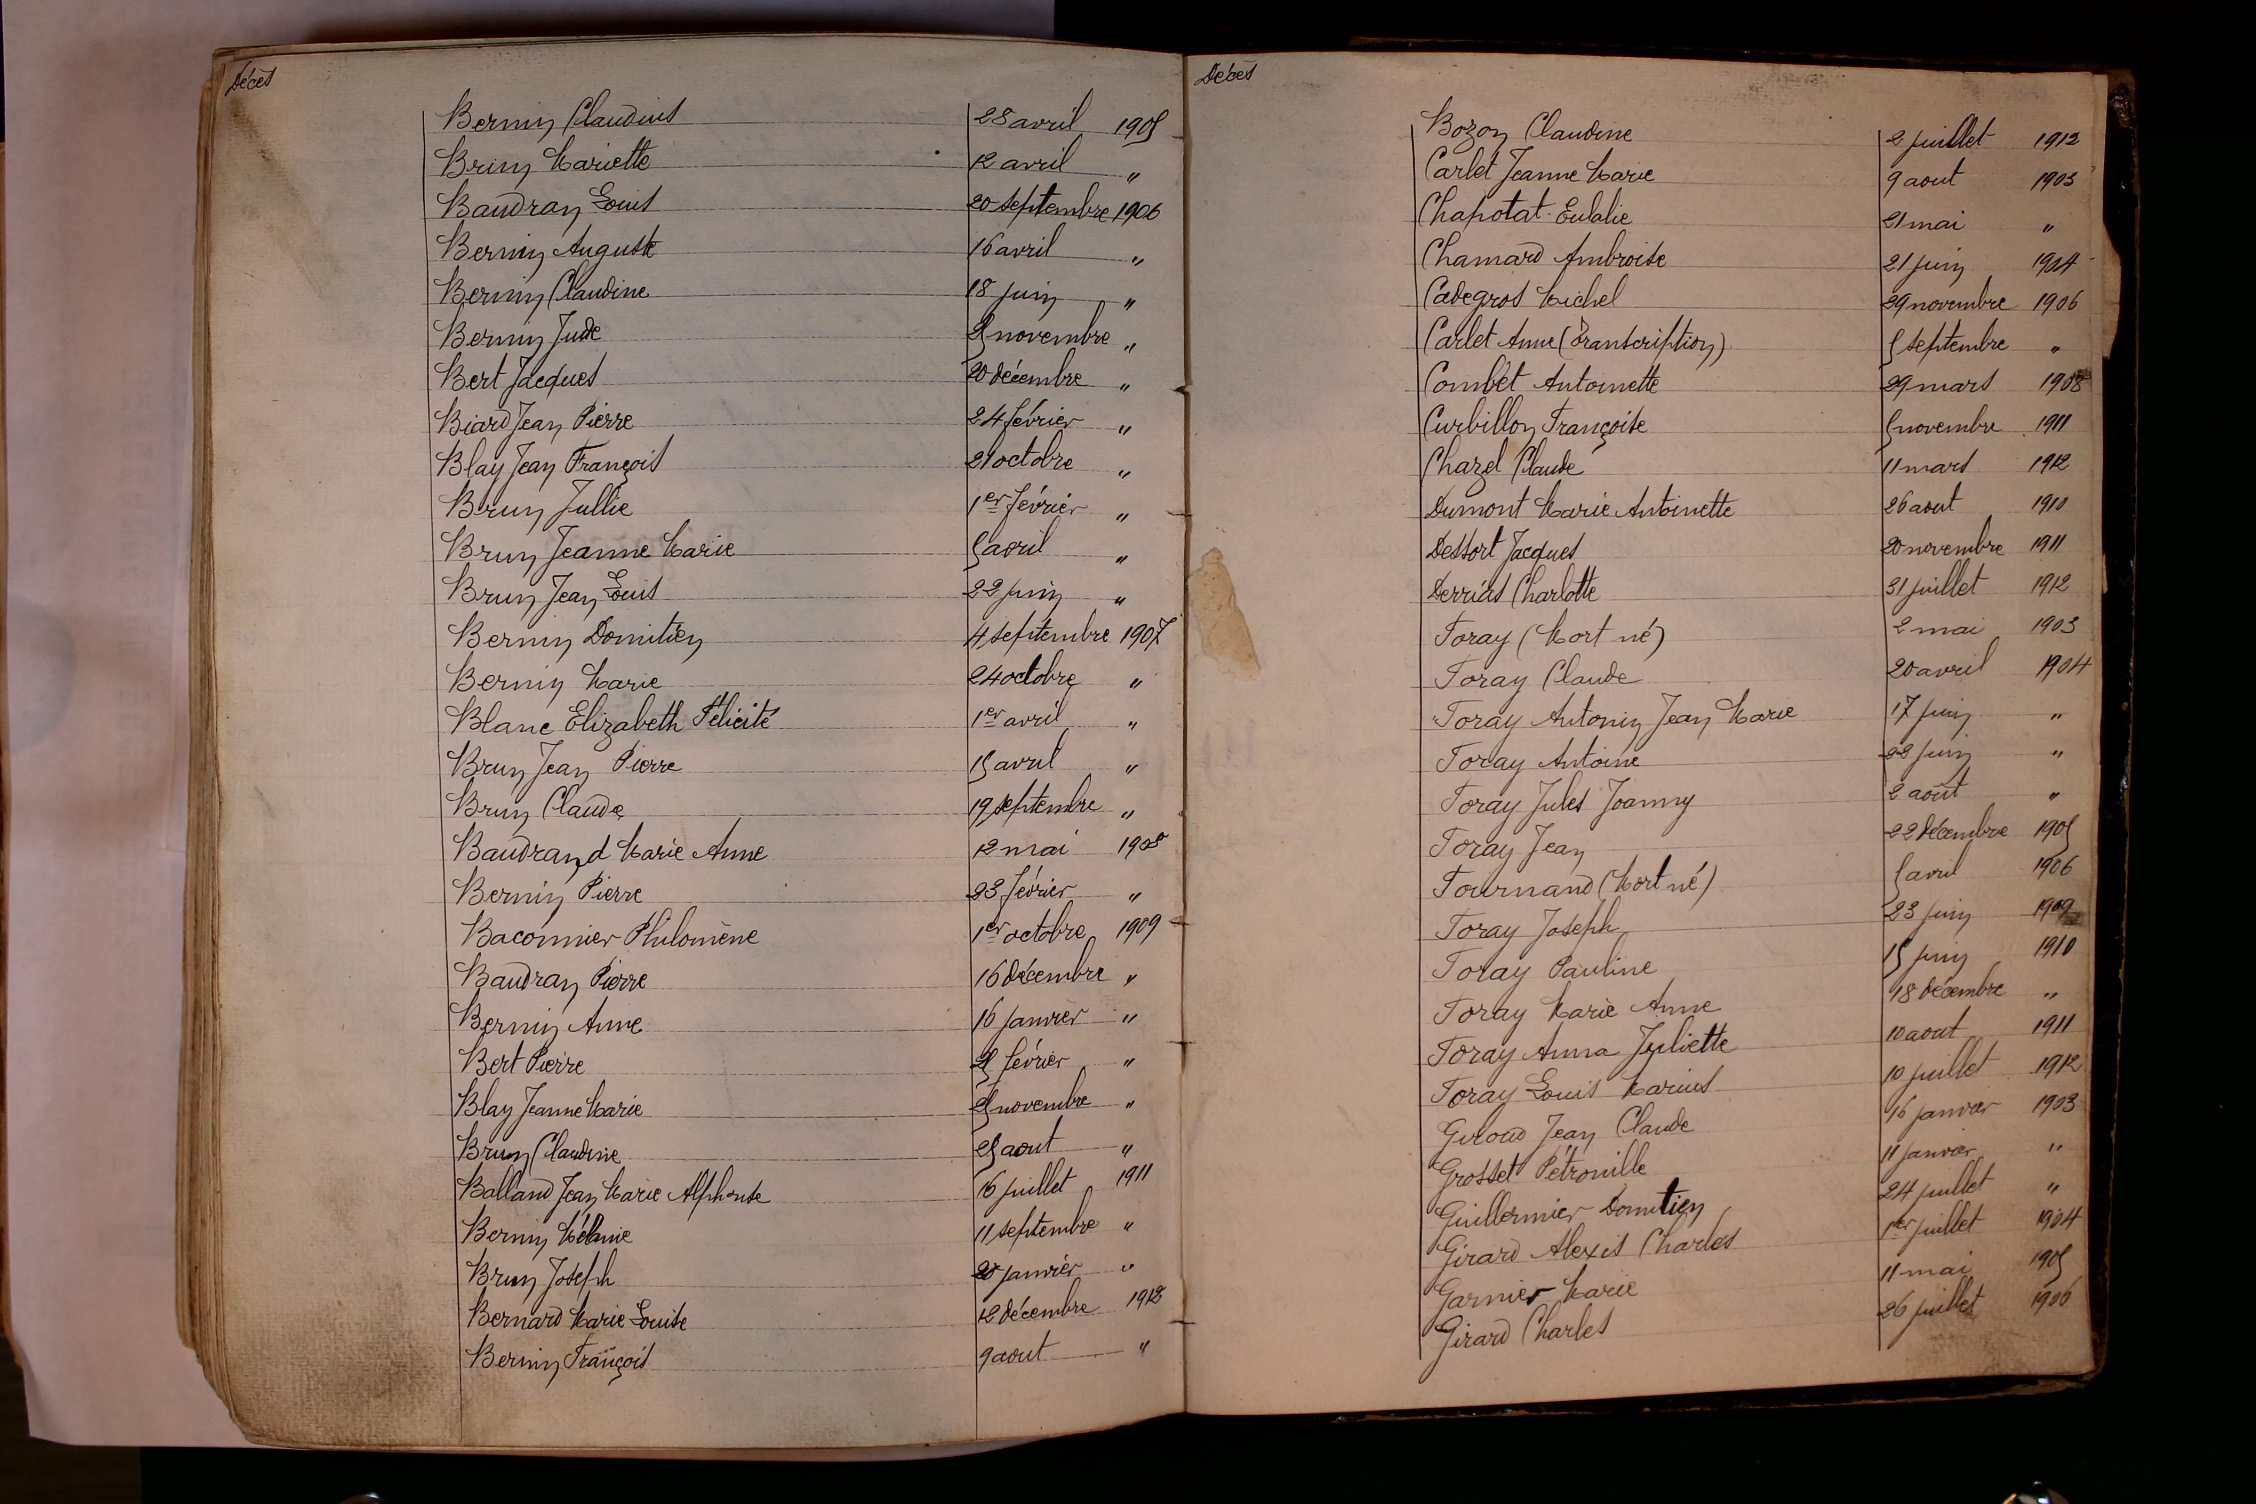 Décès
Bernin Claudius 28 avril 1905
Brun Mariette 12 avril "
Baudran Louis 20 septembre 1906
Bernin Auguste 16 avril "
Bernin Claudine 18 juin "
Bernin Jude 25 novembre "
Bert Jacques 20 décembre "
Biard Jean Pierre 24 février "
Blay Jean François 21 octobre "
Brun Jullie 1er février "
Brun Jeanne Marie 5 avril "
Brun Jean Louis 22 juin "
Bernin Domitien 4 septembre 1907
Bernin Marie 24 octobre "
Blanc Elizabeth Félicité 1er avril "
Brun Jean Pierre 15 avril "
Brun Claude 19 septembre "
Baudrand Marie Anne 12 mai 1908
Bernin Pierre 23 février "
Baconnier Philomène 1er octobre 1909
Baudran Pierre 16 décembre "
Bernin Anne 16 janvier "
Bert Pierre 25 février "
Blay Jeanne Marie 25 novembre "
Brun Claudine 25 aout "
Balland Jean Marie Alphonse 16 juillet 1911
Bernin Mélanie 11 septembre "
Brun Joseph 20 janvier "
Bernard Marie Louise 12 décembre 1912
Bernin François 9 aout "
Décès
Bozon Claudine 2 juillet 1912
Carlet Jeanne Marie 9 aout 1903
Chapotat Eulalie 21 mai "
Chamard Ambroise 21 juin 1904
Cadegros Michel 29 novembre 1906
Carlet Anne (Transcription) 5 septembre "
Combet Antoinette 29 mars 1908
Curbillon Françoise 5 novembre 1911
Chazel Claude 11 mars 1912
Dumont Marie Antoinette 26 aout 1910
Dessort Jacques 20 novembre 1911
Derrias Charlotte 31 juillet 1912
Foray (Mort né) 2 mai 1903
Foray Claude 20 avril 1904
Foray Antonin Jean Marie 17 juin "
Foray Antoine 23 juin "
Foray Jules Joanny 2 août "
Foray Jean 22 décembre 1905
Fournand (Mort né) 5 avril 1906
Foray Joseph 23 juin 1909
Foray Pauline 15 juin 1910
Foray Marie Anne 18 décembre "
Foray Anna Juliette 10 aout 1911
Foray Louis Marius 10 juillet 1912
Giroud Jean Claude 16 janvier 1903
Grosset Pétronille 11 janvier "
Guillermier Domitien 24 juillet "
Girard Alexis Charles 1er juillet 1904
Garnier Marie 11 mai 1905
Girard Charles 26 juillet 1906